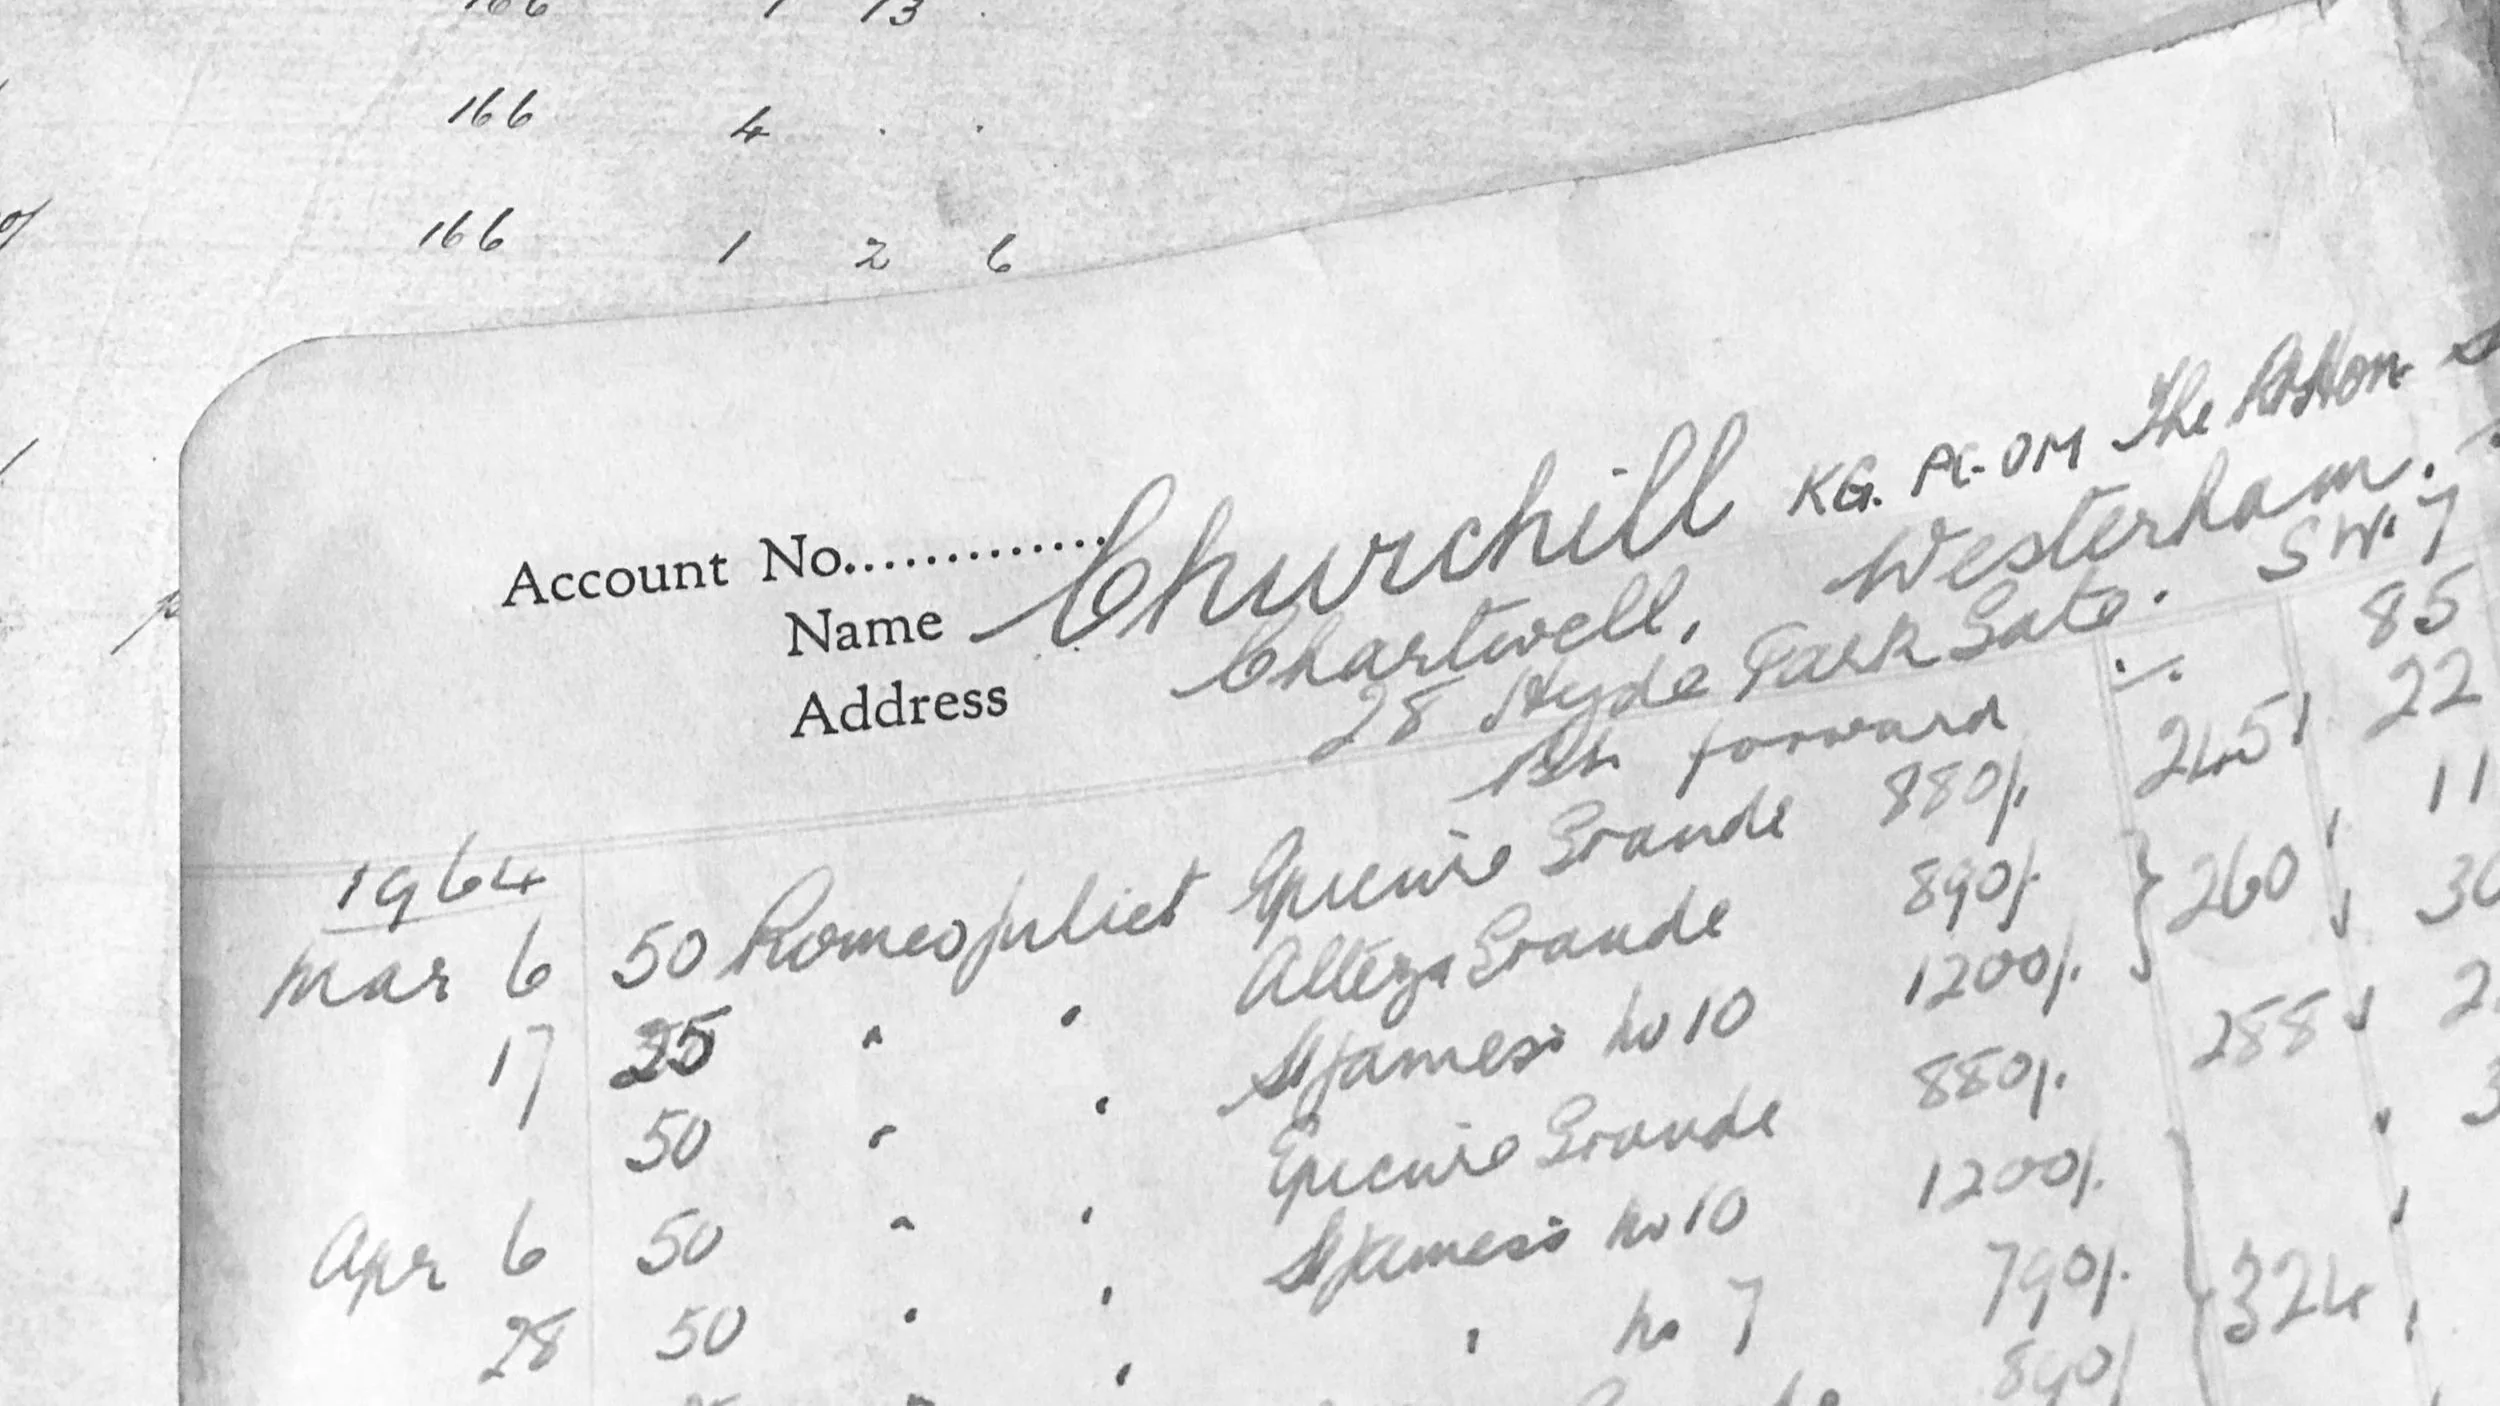 166 1 13
166 4
166 1 2 6
Account No.............
Name Churchill KG. PC. OM The Rt Hon. S
Address Chartwell, Westerham.
28 Hyde Park Gate. S W. 7
forward 245 85
1964
Mar 6 50 Romeo Juliet Epicure Grande 880/. 22
17 25 " " Alteza Grande 890/. 260 11
50 " " St James's No 10 1200/. 30
Apr 6 50 " " Epicure Grande 880/. 288
28 50 " " St James's No 10 1200/.
" " " No 7 790/. 324
890/